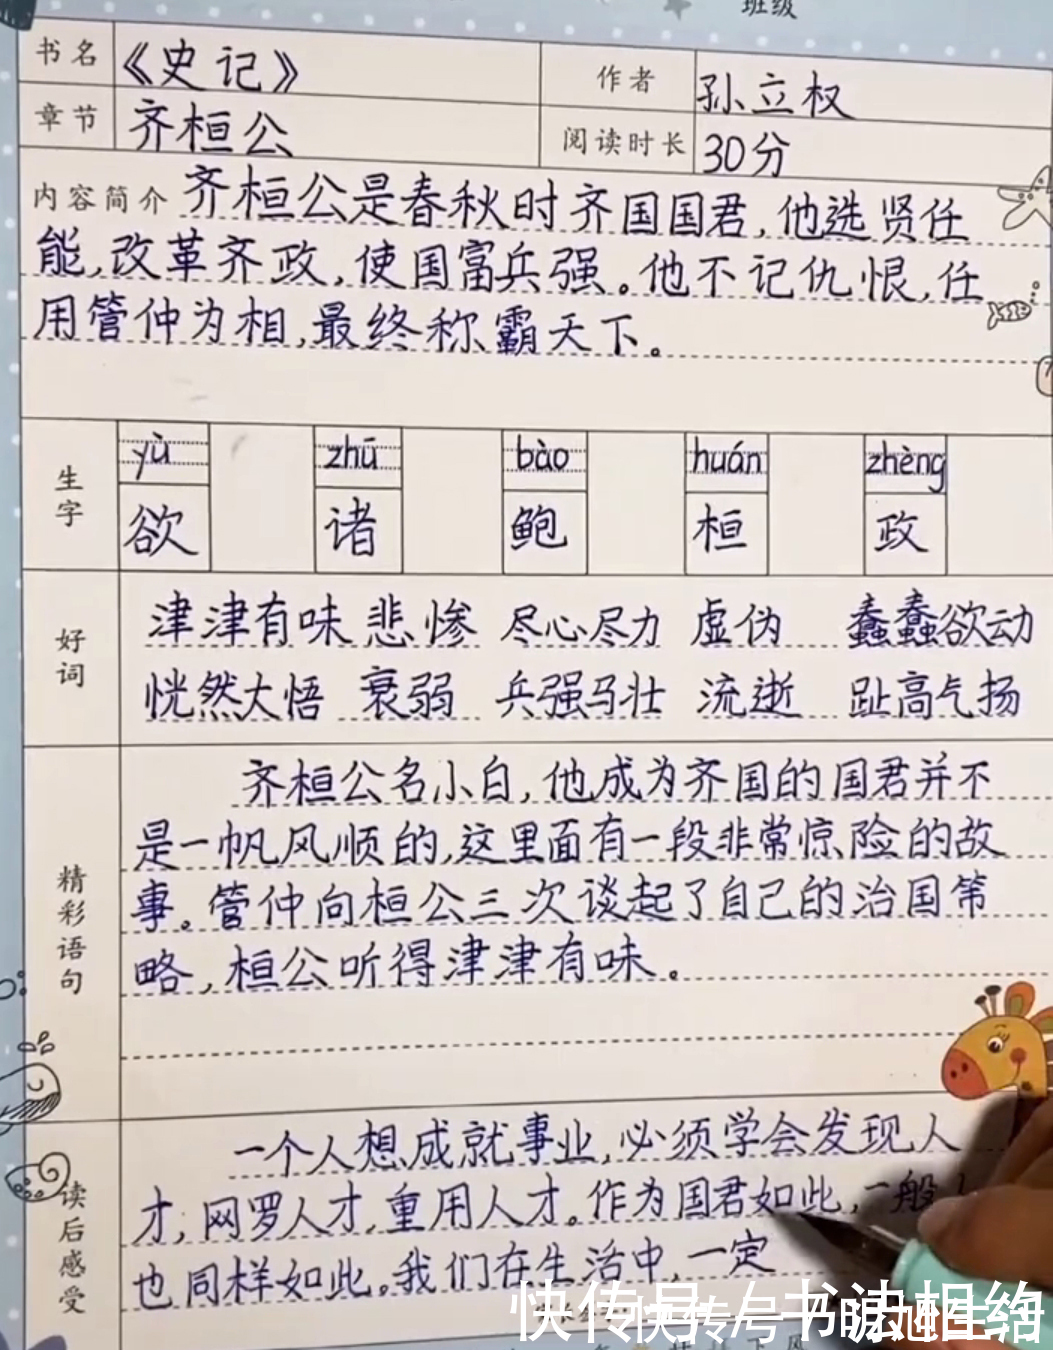 班级
书名 《史记》 作者 孙立权
章节 齐桓公 阅读时长 30分
内容简介 齐桓公是春秋时齐国国君,他选贤任
能,改革齐政,使国富兵强。他不记仇恨,任
用管仲为相,最终称霸天下。
生字 yù zhū bào huán zhèng
欲 诸 鲍 桓 政
好词 津津有味 悲惨 尽心尽力 虚伪 蠢蠢欲动
恍然大悟 衰弱 兵强马壮 流逝 趾高气扬
精彩语句 齐桓公名小白,他成为齐国的国君并不
是一帆风顺的,这里面有一段非常惊险的故
事。管仲向桓公三次谈起了自己的治国策
略,桓公听得津津有味。
读后感受 一个人想成就事业,必须学会发现人
才,网罗人才,重用人才。作为国君如此,一般
也同样如此。我们在生活中,一定
快传号/书法相约
快传号/